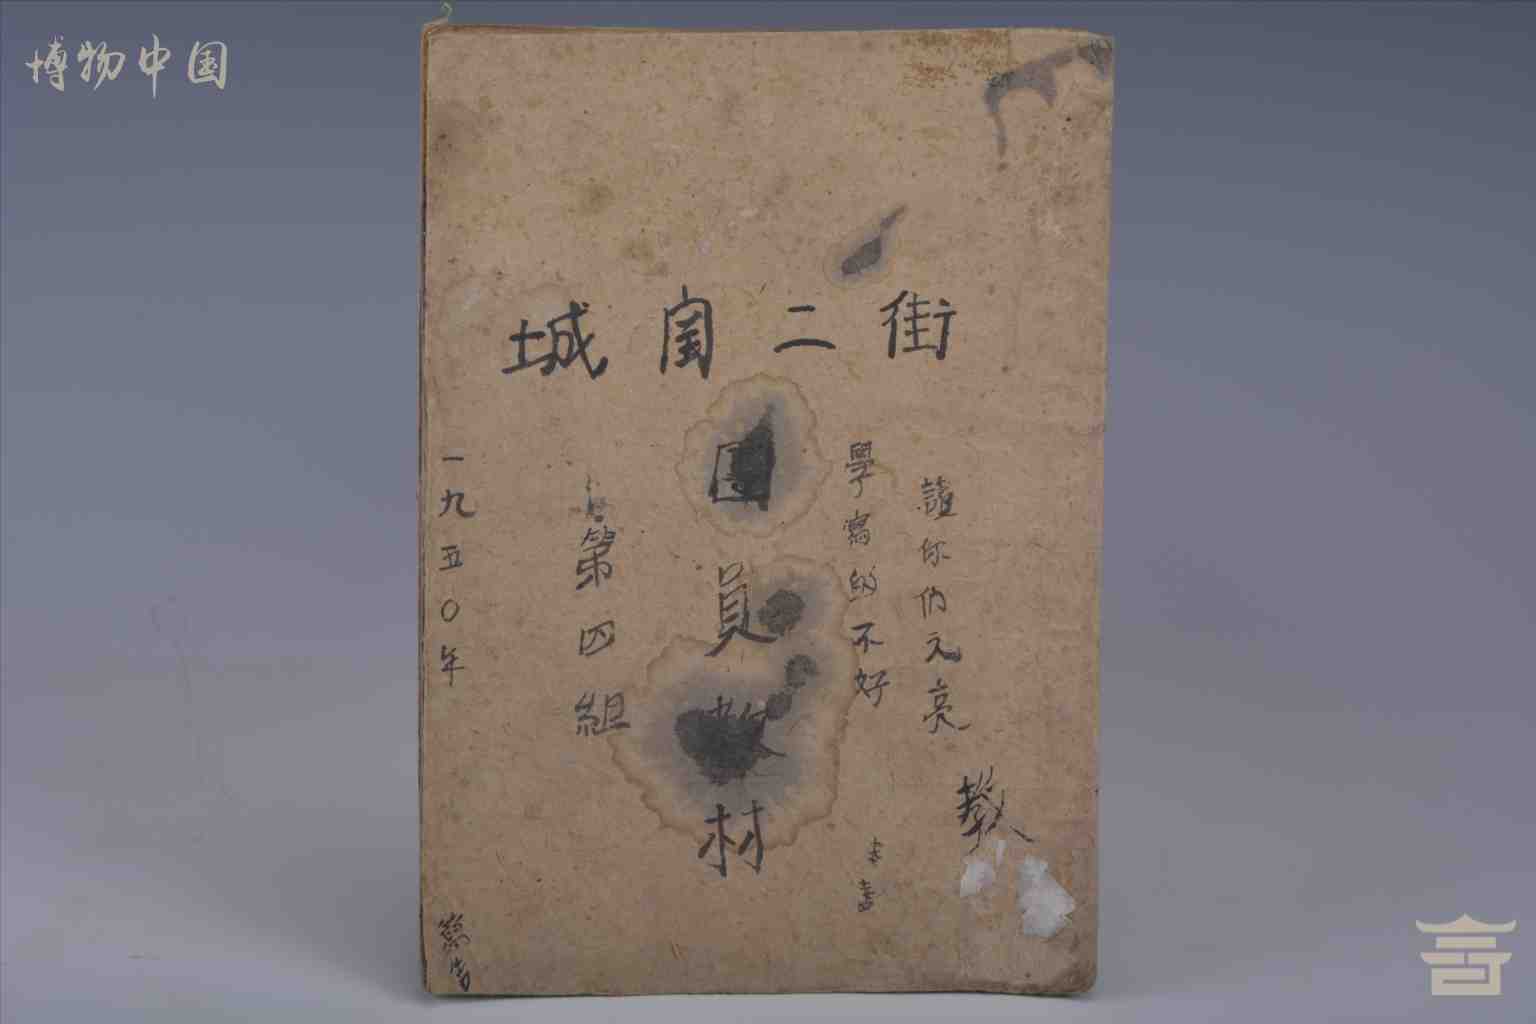 博物中国
城关二街
讀你們元亮
教
學寫的不好
團員教材
第四組
一九五〇年